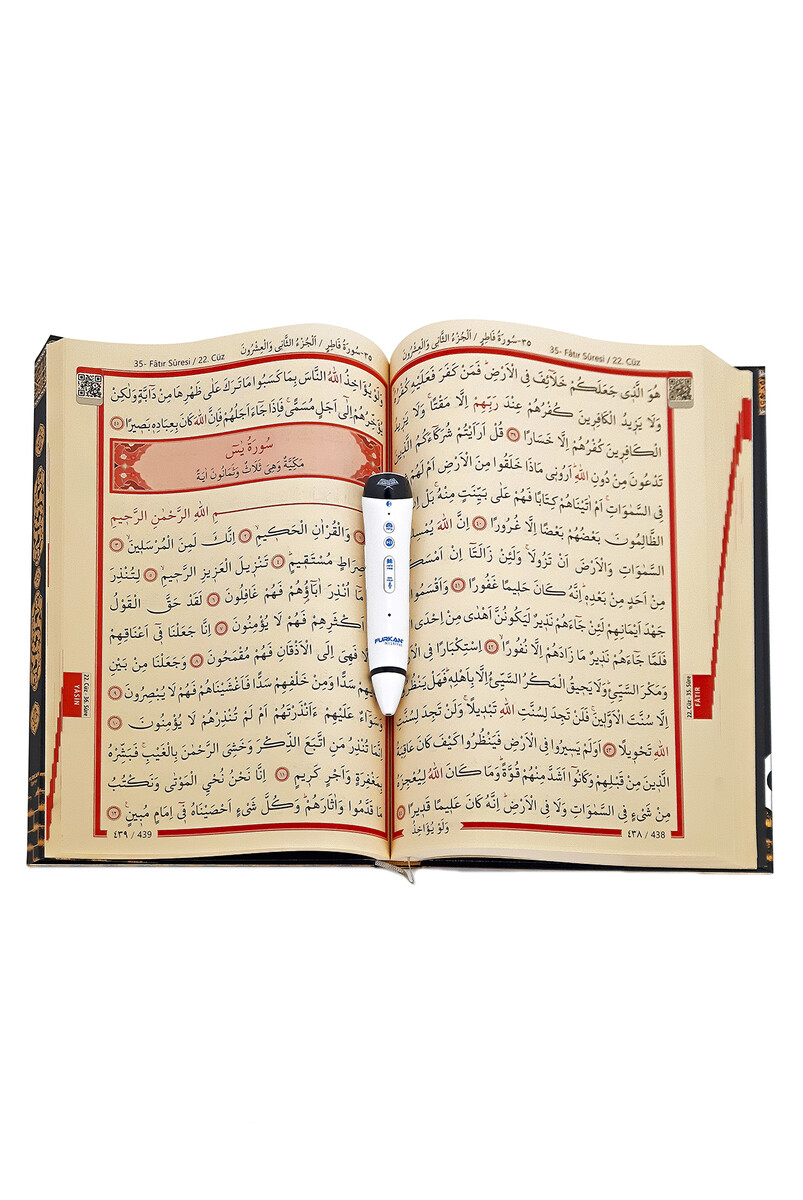 35- Fâtır Sûresi / 22. Cüz
٣٥-سُورَةُ فَاطِرٍ / اَلْجُزْءُ الثَّانِى وَالْعِشْرُونَ
هُوَ الَّذٖى جَعَلَكُمْ خَلَٓائِفَ فِى الْاَرْضِ فَمَنْ كَفَرَ فَعَلَيْهِ كُفْرُهُ
وَلَا يَزٖيدُ الْكَافِرٖينَ كُفْرُهُمْ عِنْدَ رَبِّهِمْ اِلَّا مَقْتًا وَلَا يَزٖيدُ
الْكَافِرٖينَ كُفْرُهُمْ اِلَّا خَسَارًا ٣٩ قُلْ اَرَاَيْتُمْ شُرَكَٓاءَكُمُ الَّذٖينَ
تَدْعُونَ مِنْ دُونِ اللّٰهِ اَرُونٖى مَاذَا خَلَقُوا مِنَ الْاَرْضِ اَمْ لَهُمْ
فِى السَّمٰوَاتِ اَمْ اٰتَيْنَاهُمْ كِتَابًا فَهُمْ عَلٰى بَيِّنَتٍ مِنْهُ بَلْ اِنْ
الظَّالِمُونَ بَعْضُهُمْ بَعْضًا اِلَّا غُرُورًا ٤٠ اِنَّ اللّٰهَ
السَّمٰوَاتِ وَالْاَرْضَ اَنْ تَزُولَا وَلَئِنْ زَالَتَٓا اِنْ اَمْسَكَ
مِنْ اَحَدٍ مِنْ بَعْدِهٖ اِنَّهُ كَانَ حَلٖيمًا غَفُورًا ٤١ وَاَقْسَمُوا
جَهْدَ اَيْمَانِهِمْ لَئِنْ جَٓاءَهُمْ نَذٖيرٌ لَيَكُونُنَّ اَهْدٰى مِنْ اِحْدَى
فَلَمَّا جَٓاءَهُمْ نَذٖيرٌ مَا زَادَهُمْ اِلَّا نُفُورًا ٤٢ اِسْتِكْبَارًا فِى
وَمَكْرَ السَّيِّئِ وَلَا يَحٖيقُ الْمَكْرُ السَّيِّئُ اِلَّا بِاَهْلِهٖ فَهَلْ يَنْظُرُونَ
اِلَّا سُنَّتَ الْاَوَّلٖينَ فَلَنْ تَجِدَ لِسُنَّتِ اللّٰهِ تَبْدٖيلًا وَلَنْ تَجِدَ لِسُنَّتِ
اللّٰهِ تَحْوٖيلًا ٤٣ اَوَلَمْ يَسٖيرُوا فِى الْاَرْضِ فَيَنْظُرُوا كَيْفَ كَانَ عَاقِبَةُ
الَّذٖينَ مِنْ قَبْلِهِمْ وَكَانُٓوا اَشَدَّ مِنْهُمْ قُوَّةً وَمَا كَانَ اللّٰهُ لِيُعْجِزَهُ
مِنْ شَىْءٍ فِى السَّمٰوَاتِ وَلَا فِى الْاَرْضِ اِنَّهُ كَانَ عَلٖيمًا قَدٖيرًا ٤٤
وَلَوْ يُؤَاخِذُ
٤٣٨ / 438
22. Cüz - 35. Sûre
FÂTIR
35- Fâtır Sûresi / 22. Cüz
٣٥-سُورَةُ فَاطِرٍ / اَلْجُزْءُ الثَّانِى وَالْعِشْرُونَ
وَلَوْ يُؤَاخِذُ اللّٰهُ النَّاسَ بِمَا كَسَبُوا مَا تَرَكَ عَلٰى ظَهْرِهَا مِنْ دَٓابَّةٍ وَلٰكِنْ
يُؤَخِّرُهُمْ اِلٰٓى اَجَلٍ مُسَمًّى فَاِذَا جَٓاءَ اَجَلُهُمْ فَاِنَّ اللّٰهَ كَانَ بِعِبَادِهٖ بَصٖيرًا ٤٥
سُورَةُ يٰسٓ
مَكِّيَّةٌ وَهِىَ ثَلَاثٌ وَثَمَانُونَ اٰيَةً
بِسْمِ اللّٰهِ الرَّحْمٰنِ الرَّحٖيمِ
وَالْقُرْاٰنِ الْحَكٖيمِ ٢ اِنَّكَ لَمِنَ الْمُرْسَلٖينَ ٣
صِرَاطٍ مُسْتَقٖيمٍ ٤ تَنْزٖيلَ الْعَزٖيزِ الرَّحٖيمِ ٥ لِتُنْذِرَ
مَٓا اُنْذِرَ اٰبَٓاؤُهُمْ فَهُمْ غَافِلُونَ ٦ لَقَدْ حَقَّ الْقَوْلُ
اَكْثَرِهِمْ فَهُمْ لَا يُؤْمِنُونَ ٧ اِنَّا جَعَلْنَا فٖٓى اَعْنَاقِهِمْ
فَهِىَ اِلَى الْاَذْقَانِ فَهُمْ مُقْمَحُونَ ٨ وَجَعَلْنَا مِنْ بَيْنِ
سَدًّا وَمِنْ خَلْفِهِمْ سَدًّا فَاَغْشَيْنَاهُمْ فَهُمْ لَا يُبْصِرُونَ ٩
وَسَوَٓاءٌ عَلَيْهِمْ ءَاَنْذَرْتَهُمْ اَمْ لَمْ تُنْذِرْهُمْ لَا يُؤْمِنُونَ ١٠
اِنَّمَا تُنْذِرُ مَنِ اتَّبَعَ الذِّكْرَ وَخَشِىَ الرَّحْمٰنَ بِالْغَيْبِ فَبَشِّرْهُ
بِمَغْفِرَةٍ وَاَجْرٍ كَرٖيمٍ ١١ اِنَّا نَحْنُ نُحْيِ الْمَوْتٰى وَنَكْتُبُ
مَا قَدَّمُوا وَاٰثَارَهُمْ وَكُلَّ شَىْءٍ اَحْصَيْنَاهُ فٖٓى اِمَامٍ مُبٖينٍ ١٢
٤٣٩ / 439
22. Cüz - 36. Sûre
YÂSİN
FURKAN